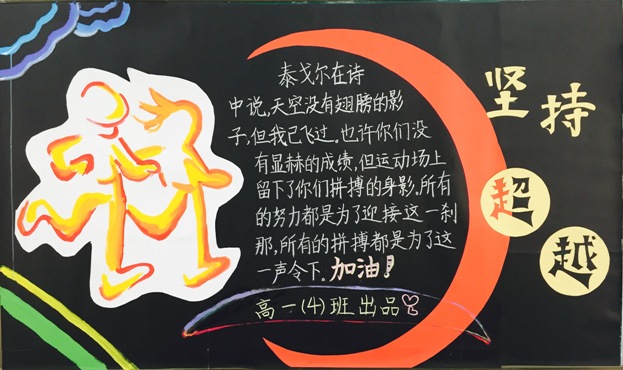 坚持
超
越
泰戈尔在诗
中说,天空没有翅膀的影
子,但我已飞过。也许你们没
有显赫的成绩,但运动场上
留下了你们拼搏的身影。所有
的努力都是为了迎接这一刹
那,所有的拼搏都是为了这
一声令下。加油!
高一(4)班出品